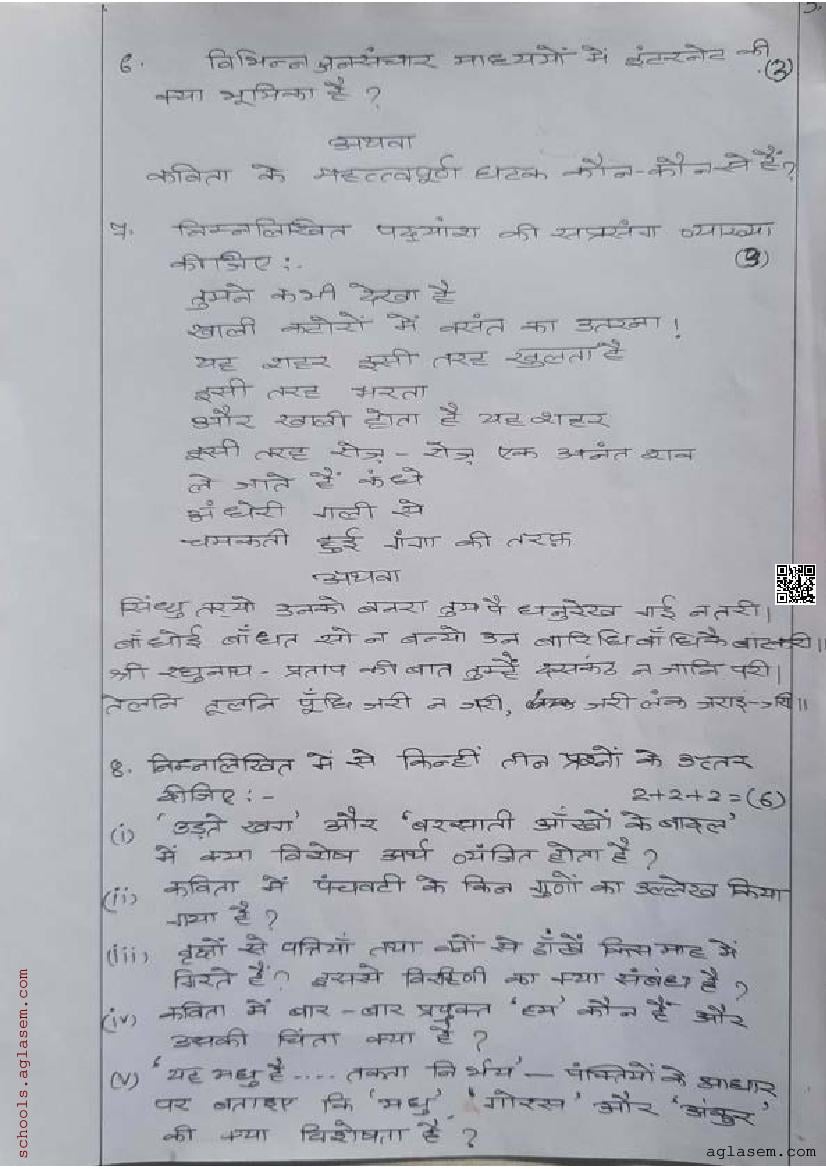 3.
6. विभिन्न जनसंचार माध्यमों में इंटरनेट की
(3)
क्या भूमिका है ?
अथवा
कविता के महत्त्वपूर्ण घटक कौन-कौन से हैं?
7. निम्नलिखित पद्यांश की सप्रसंग व्याख्या
कीजिए :- (3)
तुमने कभी देखा है
खाली कटोरों में वसंत का उतरना !
यह शहर इसी तरह खुलता है
इसी तरह भरता
और खाली होता है यह शहर
इसी तरह रोज़ - रोज़ एक अनंत शव
ले जाते हैं कंधे
अंधेरी गली से
चमकती हुई गंगा की तरफ़
अथवा
सिंधु तर्यो उनको बनरा तुम पै धनुरेख गई न तरी।
बाँधोई बाँधत सो न बन्यो उन बारिधि बाँधिकै बाट करी॥
श्री रघुनाथ - प्रताप की बात तुम्हैं दसकंठ न जानि परी।
तेलनि तूलनि पूँछि जरी न जरी, जरी लंक जराइ-जरी॥
8. निम्नलिखित में से किन्हीं तीन प्रश्नों के उत्तर
दीजिए :- 2+2+2=(6)
(i) 'उड़ते खग' और 'बरसाती आँखों के बादल'
में क्या विशेष अर्थ व्यंजित होता है ?
(ii) कविता में पंचवटी के किन गुणों का उल्लेख किया
गया है ?
(iii) वृक्षों से पत्तियाँ तथा वनों से ढाँखें किस माह में
गिरते हैं? इससे विरहिणी का क्या संबंध है ?
(iv) कविता में बार - बार प्रयुक्त 'हम' कौन है और
उसकी चिंता क्या है ?
(v) 'यह मधु है .... तकता निर्भय' – पंक्तियों के आधार
पर बताइए कि 'मधु', 'गोरस' और 'अंकुर'
की क्या विशेषता है ?
schools.aglasem.com
aglasem.com